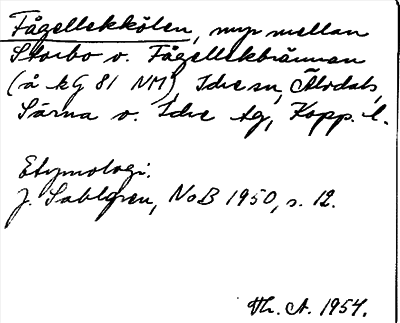 Fågellekkölen, myr mellan
Storbo o. Fågellekbrännan
(å kG 81 NM), Idre sn, Älvdals,
Särna o. Idre tg, Kopp. l.
Etymologi.
J. Sahlgren, NoB 1950, s. 12.
Th. A. 1954.